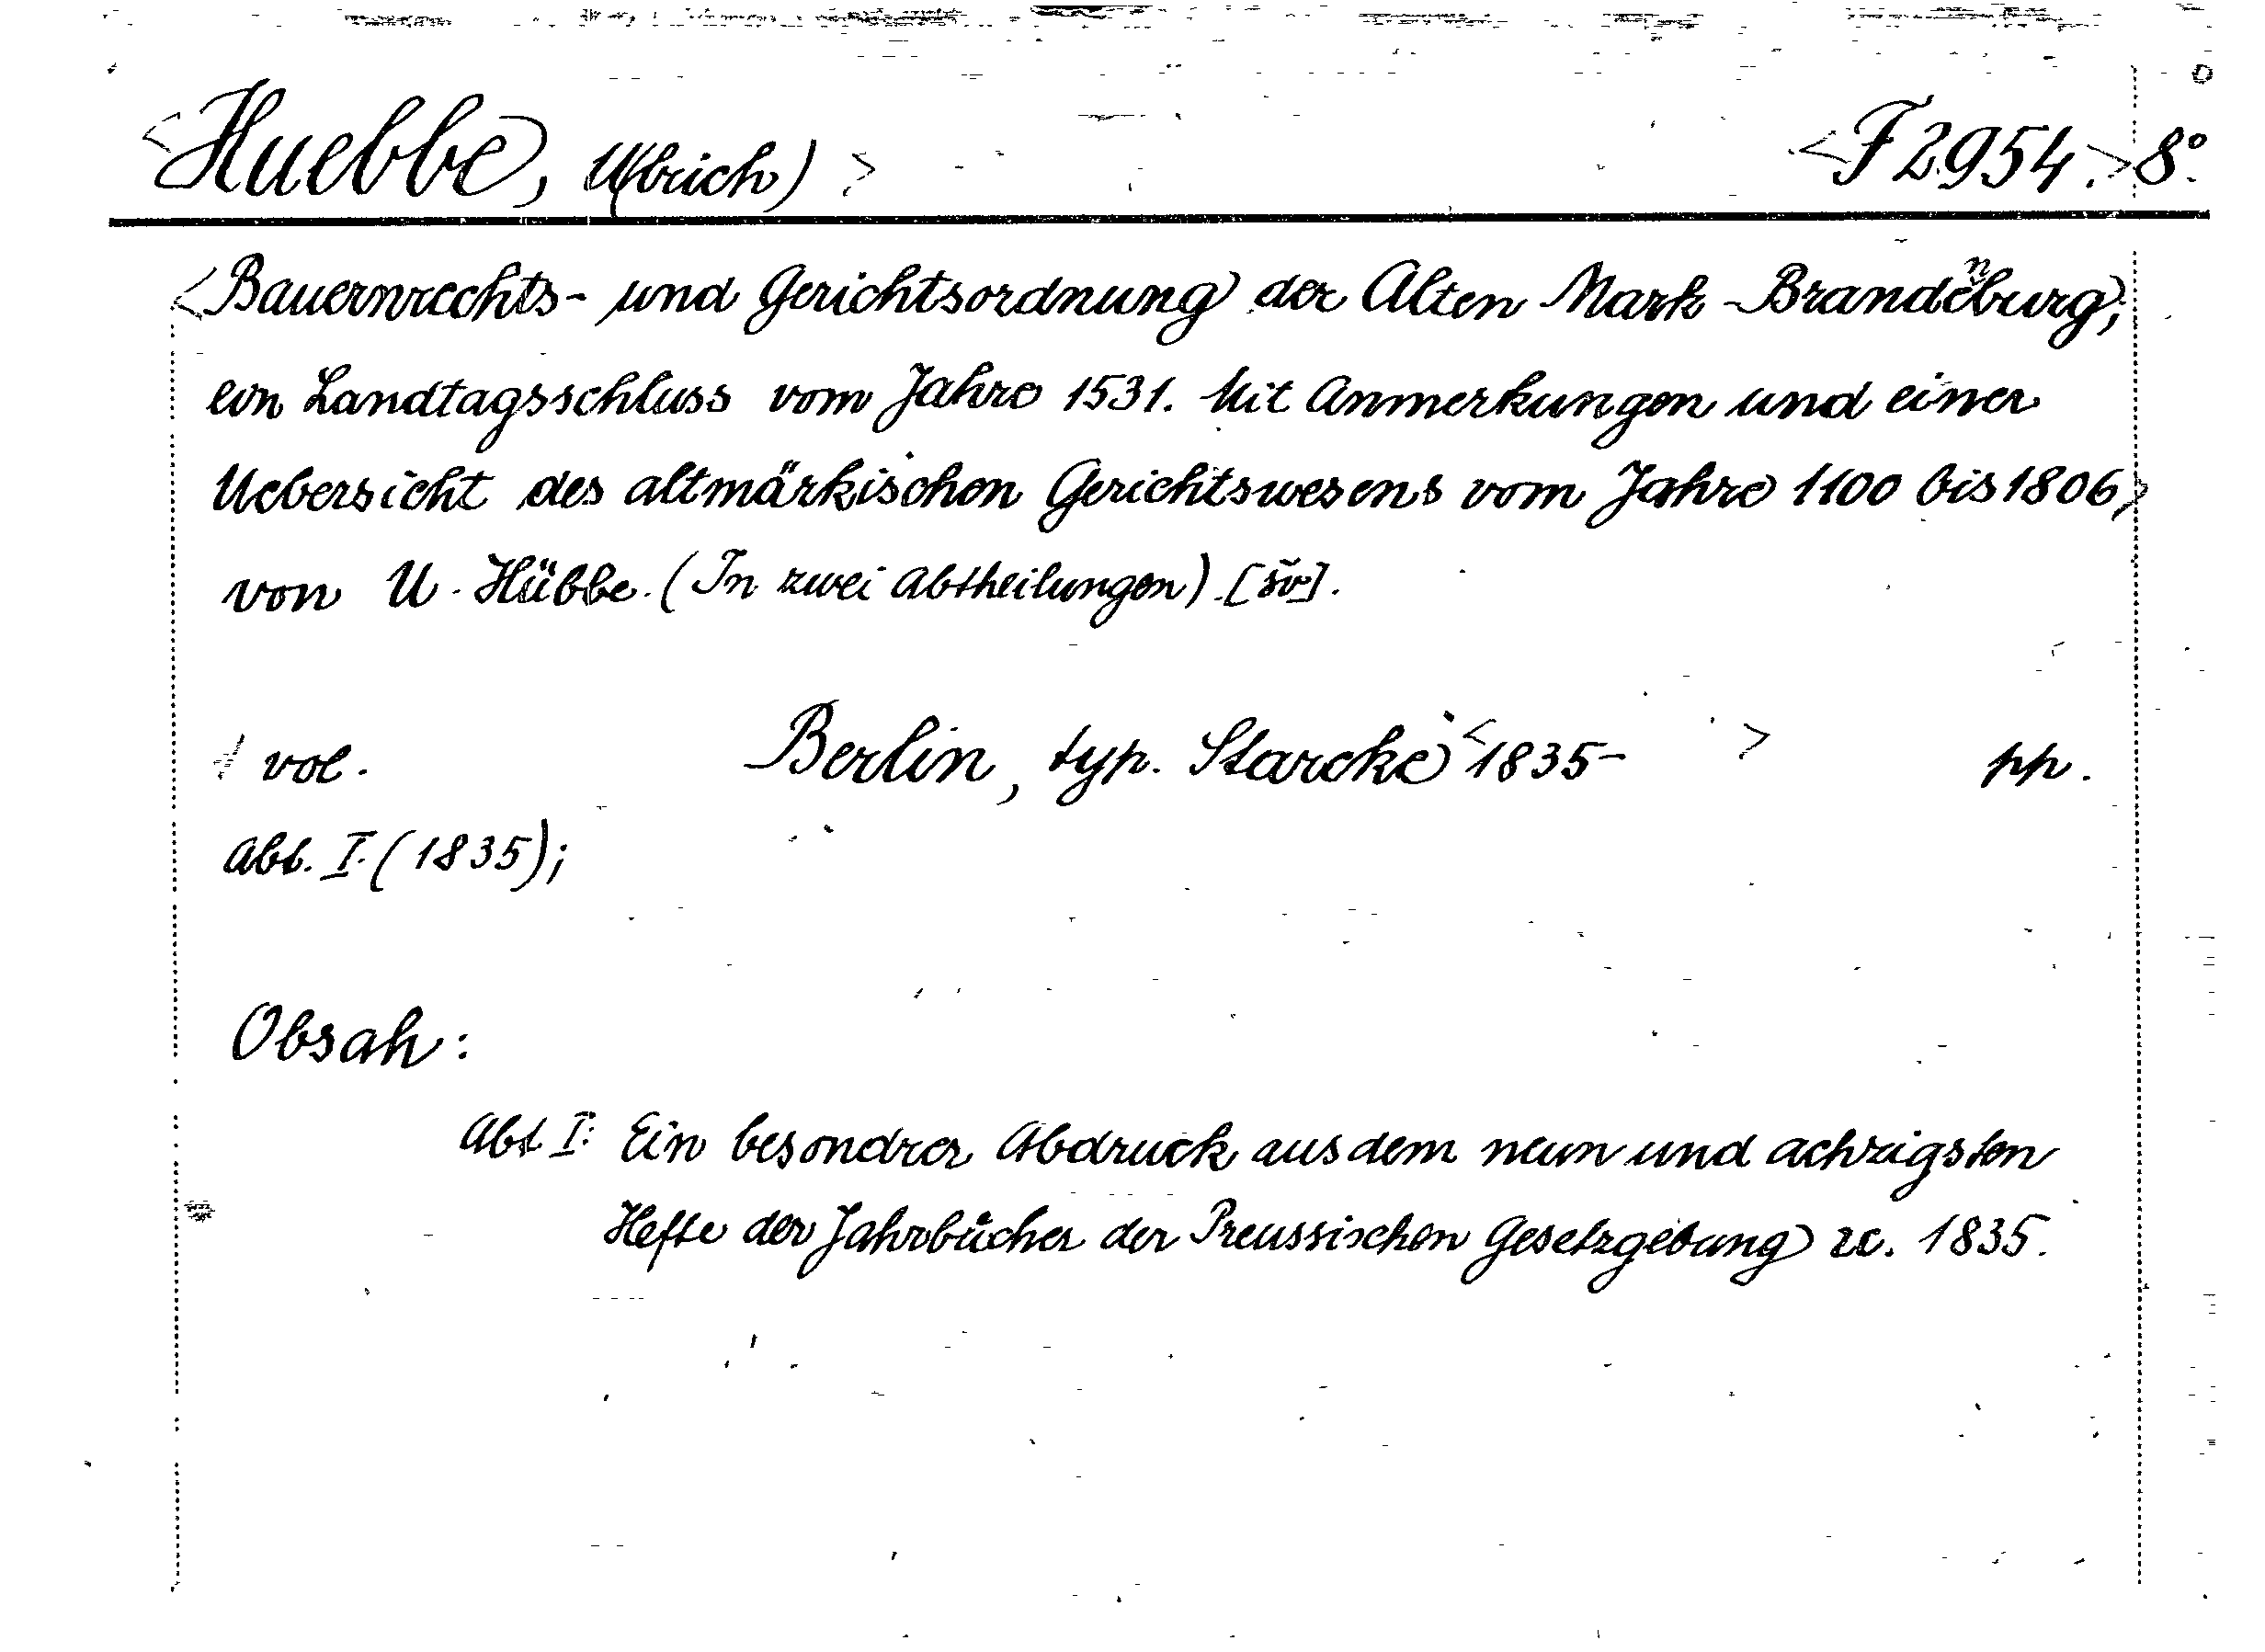 <Huebbe, U(lrich)> <F 2954.> 8°.
<Bauernrechts- und Gerichtsordnung der Alten Mark-Brandenburg;
ein Landtagsschluss vom Jahre 1531. Mit Anmerkungen und einer
Uebersicht des altmärkischen Gerichtswesens vom Jahre 1100 bis 1806,>
von U. Hübbe. (In zwei Abtheilungen). [šv].
vol. Berlin, typ. Starcke <1835- > pp.
Abt. I. (1835);
Obsah:
Abt I: Ein besondrer Abdruck aus dem neun und achzigsten
Hefte der Jahrbücher der Preussischen Gesetzgebung ꝛc. 1835.